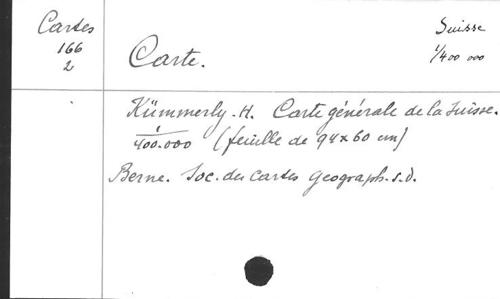 Cartes
166
2
Carte.
Suisse
1/400 000
Kümmerly. H. Carte générale de la Suisse.
1/400.000 (feuille de 94x60 cm)
Berne. Soc. des Cartes Geograph. s.d.